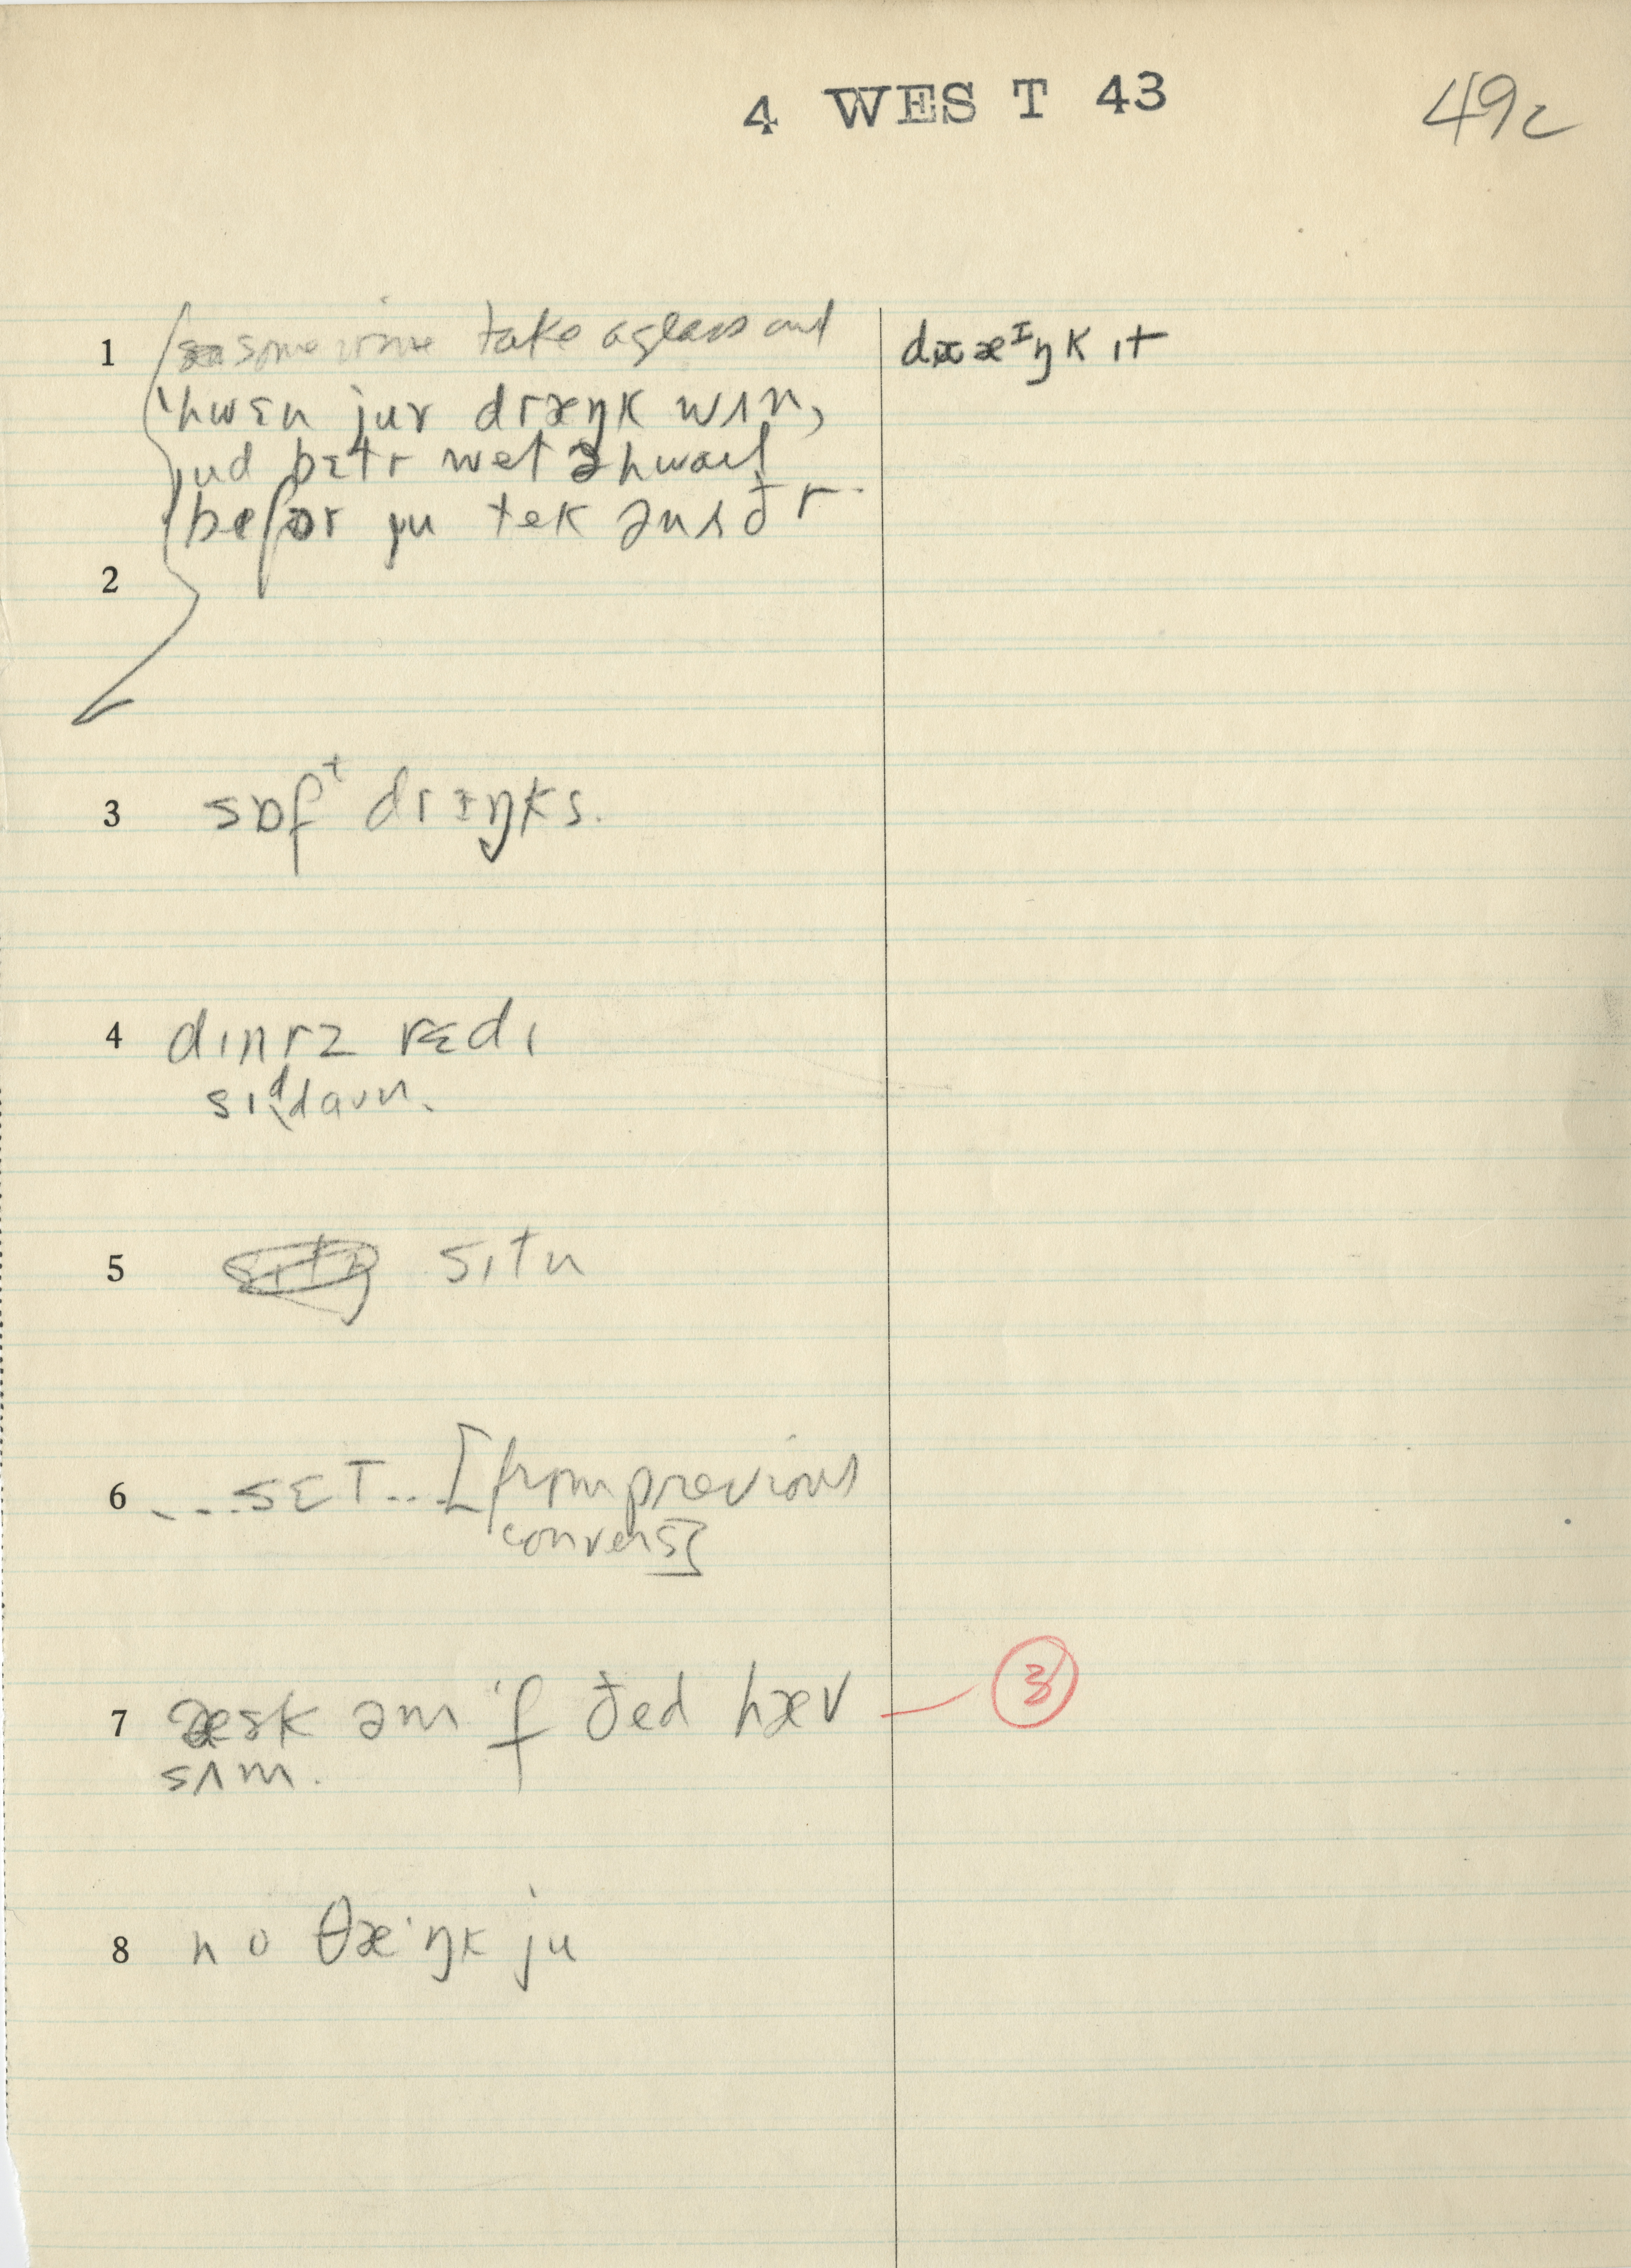 4 WES T 43
49c
1 some wine take a glass and
dræᴵŋk ɪt
ʽhwɛn jur dræŋk wɪn,
jud bɛtr wet ə hwaɪl
befɔr ju tek ənʌðr.
2
3 sɒfᵗ drɪŋks.
4 dɪnrz rɛdɪ
sɪᵈdaʊn.
5 sɪtn
6 ...sɛt...[from previous
convers]
7 æsk əm ɪf ðed hæv
3
sʌm.
8 no θæɪŋk ju